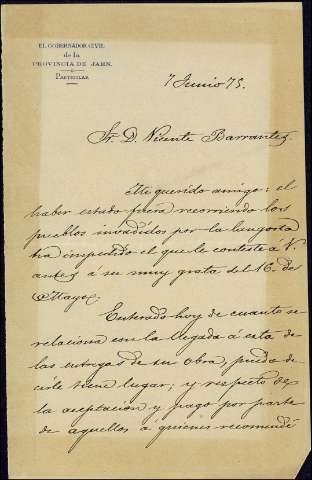 EL GOBERNADOR CIVIL
de la
PROVINCIA DE JAEN.
PARTICULAR
7 Junio 75.
Sr. D. Vicente Barrantes.
Mi querido amigo: el
haber estado fuera recorriendo los
pueblos invadidos por la langosta
ha impedido el que le conteste a V.
antes á su muy grata del 16 de
Mayo.
Enterado hoy de cuanto se
relaciona con la llegada á esta de
las entregas de su obra, puedo de-
cirle tiene lugar; y respecto de
la aceptacion y pago por parte
de aquellos á quienes recomendé